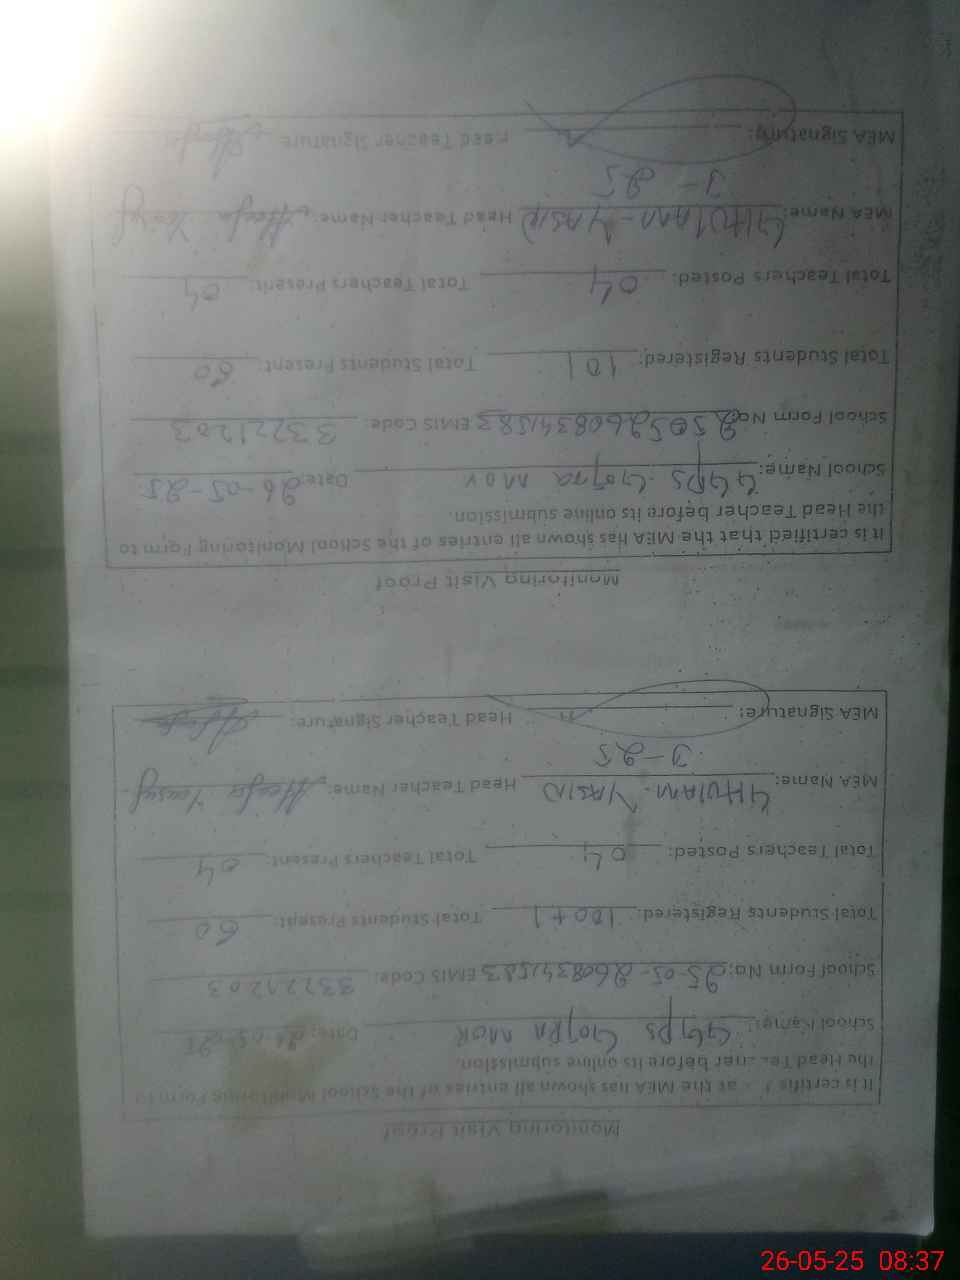 Monitoring Visit Proof
It is certified that the MEA has shown all entries of the School Monitoring Form to
the Head Teacher before its online submission.
School Name: GGPS Gojra MOR Date: 26-05-25
School Form No: 25-05-260834/1583 EMIS Code: 33221203
Total Students Registered: 100+1 Total Students Present: 60
Total Teachers Posted: 04 Total Teachers Present: 04
MEA Name: GHULAM YASIN Head Teacher Name: Yousuf
J-25
MEA Signature: Head Teacher Signature:
Monitoring Visit Proof
It is certified that the MEA has shown all entries of the School Monitoring Form to
the Head Teacher before its online submission.
School Name: GGPS Gojra MOR Date: 26-05-25
School Form No: EMIS Code: 33221203
Total Students Registered: 101 Total Students Present: 60
Total Teachers Posted: 04 Total Teachers Present: 04
MEA Name: GHULAM-YASIN Head Teacher Name: Yousuf
J-25
MEA Signature: Head Teacher Signature
26-05-25 08:37